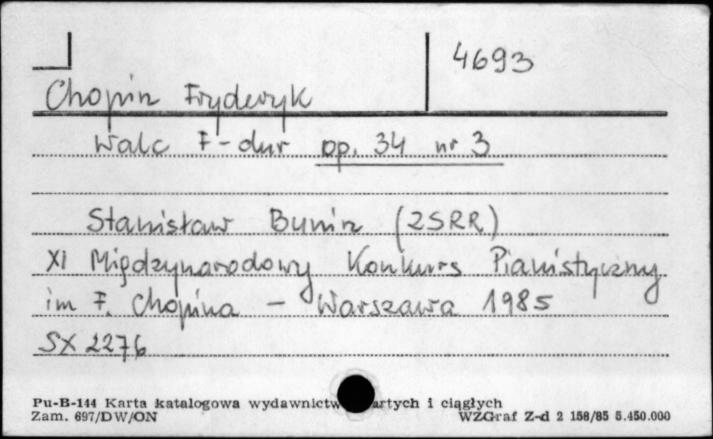 4693
Chopin Fryderyk
Walc F-dur op. 34 nr 3
Stanisław Bunin (ZSRR)
XI Międzynarodowy Konkurs Pianistyczny
im F. Chopina - Warszawa 1985
SX 2276
Pu-B-144 Karta katalogowa wydawnictw artych i ciągłych
Zam. 697/DW/ON WZGraf Z-d 2 158/85 5.450.000